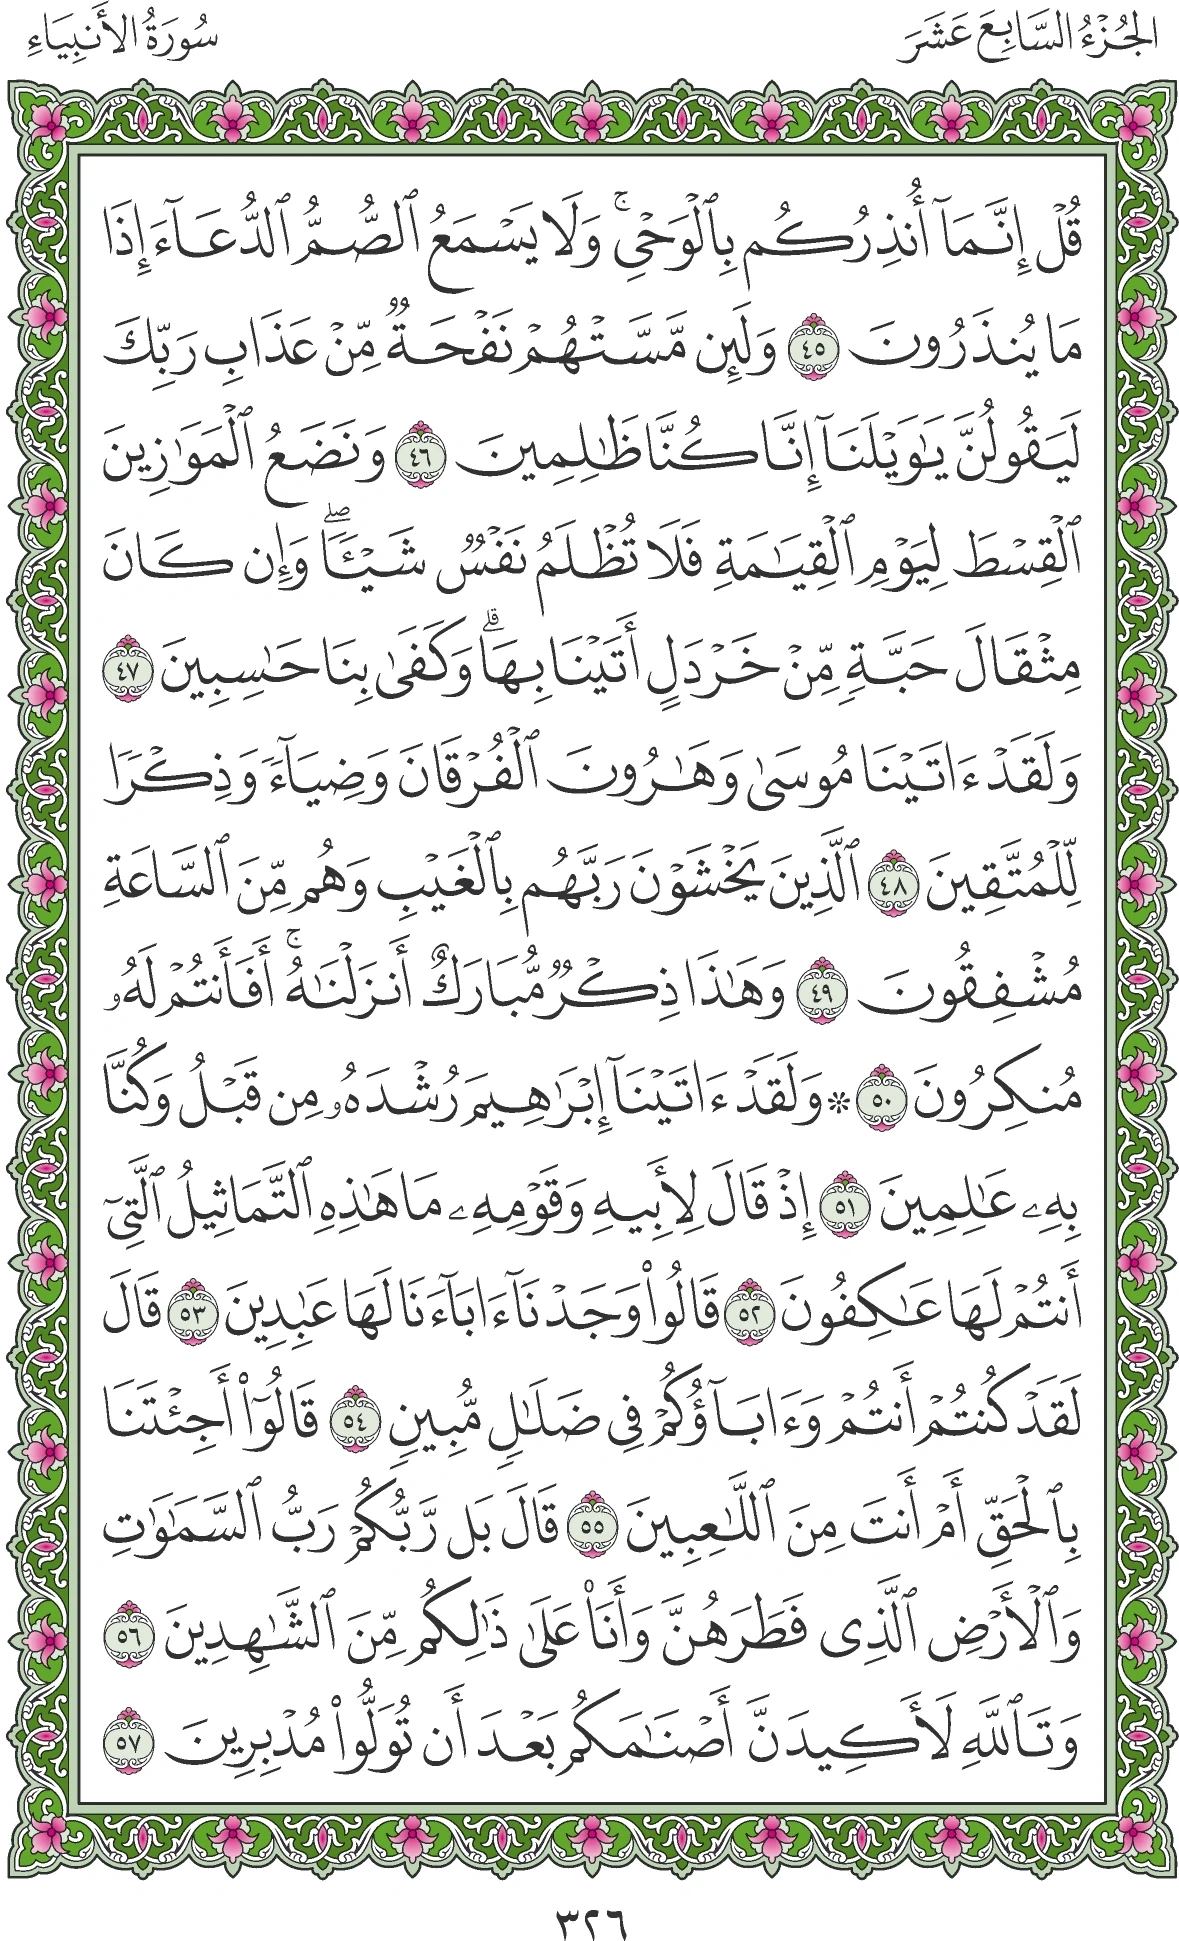 الجُزْءُ السَّابِعَ عَشَرَ
سُورَةُ الأَنبِيَاءِ
قُلْ إِنَّمَآ أُنذِرُكُم بِٱلْوَحْىِ ۚ وَلَا يَسْمَعُ ٱلصُّمُّ ٱلدُّعَآءَ إِذَا
مَا يُنذَرُونَ ٤٥ وَلَئِن مَّسَّتْهُمْ نَفْحَةٌ مِّنْ عَذَابِ رَبِّكَ
لَيَقُولُنَّ يَٰوَيْلَنَآ إِنَّا كُنَّا ظَٰلِمِينَ ٤٦ وَنَضَعُ ٱلْمَوَٰزِينَ
ٱلْقِسْطَ لِيَوْمِ ٱلْقِيَٰمَةِ فَلَا تُظْلَمُ نَفْسٌ شَيْـًٔا ۖ وَإِن كَانَ
مِثْقَالَ حَبَّةٍ مِّنْ خَرْدَلٍ أَتَيْنَا بِهَا ۗ وَكَفَىٰ بِنَا حَٰسِبِينَ ٤٧
وَلَقَدْ ءَاتَيْنَا مُوسَىٰ وَهَٰرُونَ ٱلْفُرْقَانَ وَضِيَآءً وَذِكْرًا
لِّلْمُتَّقِينَ ٤٨ ٱلَّذِينَ يَخْشَوْنَ رَبَّهُم بِٱلْغَيْبِ وَهُم مِّنَ ٱلسَّاعَةِ
مُشْفِقُونَ ٤٩ وَهَٰذَا ذِكْرٌ مُّبَارَكٌ أَنزَلْنَٰهُ ۚ أَفَأَنتُمْ لَهُۥ
مُنكِرُونَ ٥٠ ۞ وَلَقَدْ ءَاتَيْنَآ إِبْرَٰهِيمَ رُشْدَهُۥ مِن قَبْلُ وَكُنَّا
بِهِۦ عَٰلِمِينَ ٥١ إِذْ قَالَ لِأَبِيهِ وَقَوْمِهِۦ مَا هَٰذِهِ ٱلتَّمَاثِيلُ ٱلَّتِىٓ
أَنتُمْ لَهَا عَٰكِفُونَ ٥٢ قَالُوا۟ وَجَدْنَآ ءَابَآءَنَا لَهَا عَٰبِدِينَ ٥٣ قَالَ
لَقَدْ كُنتُمْ أَنتُمْ وَءَابَآؤُكُمْ فِى ضَلَٰلٍ مُّبِينٍ ٥٤ قَالُوٓا۟ أَجِئْتَنَا
بِٱلْحَقِّ أَمْ أَنتَ مِنَ ٱللَّٰعِبِينَ ٥٥ قَالَ بَل رَّبُّكُمْ رَبُّ ٱلسَّمَٰوَٰتِ
وَٱلْأَرْضِ ٱلَّذِى فَطَرَهُنَّ وَأَنَا۠ عَلَىٰ ذَٰلِكُم مِّنَ ٱلشَّٰهِدِينَ ٥٦
وَتَٱللَّهِ لَأَكِيدَنَّ أَصْنَٰمَكُم بَعْدَ أَن تُوَلُّوا۟ مُدْبِرِينَ ٥٧
٣٢٦